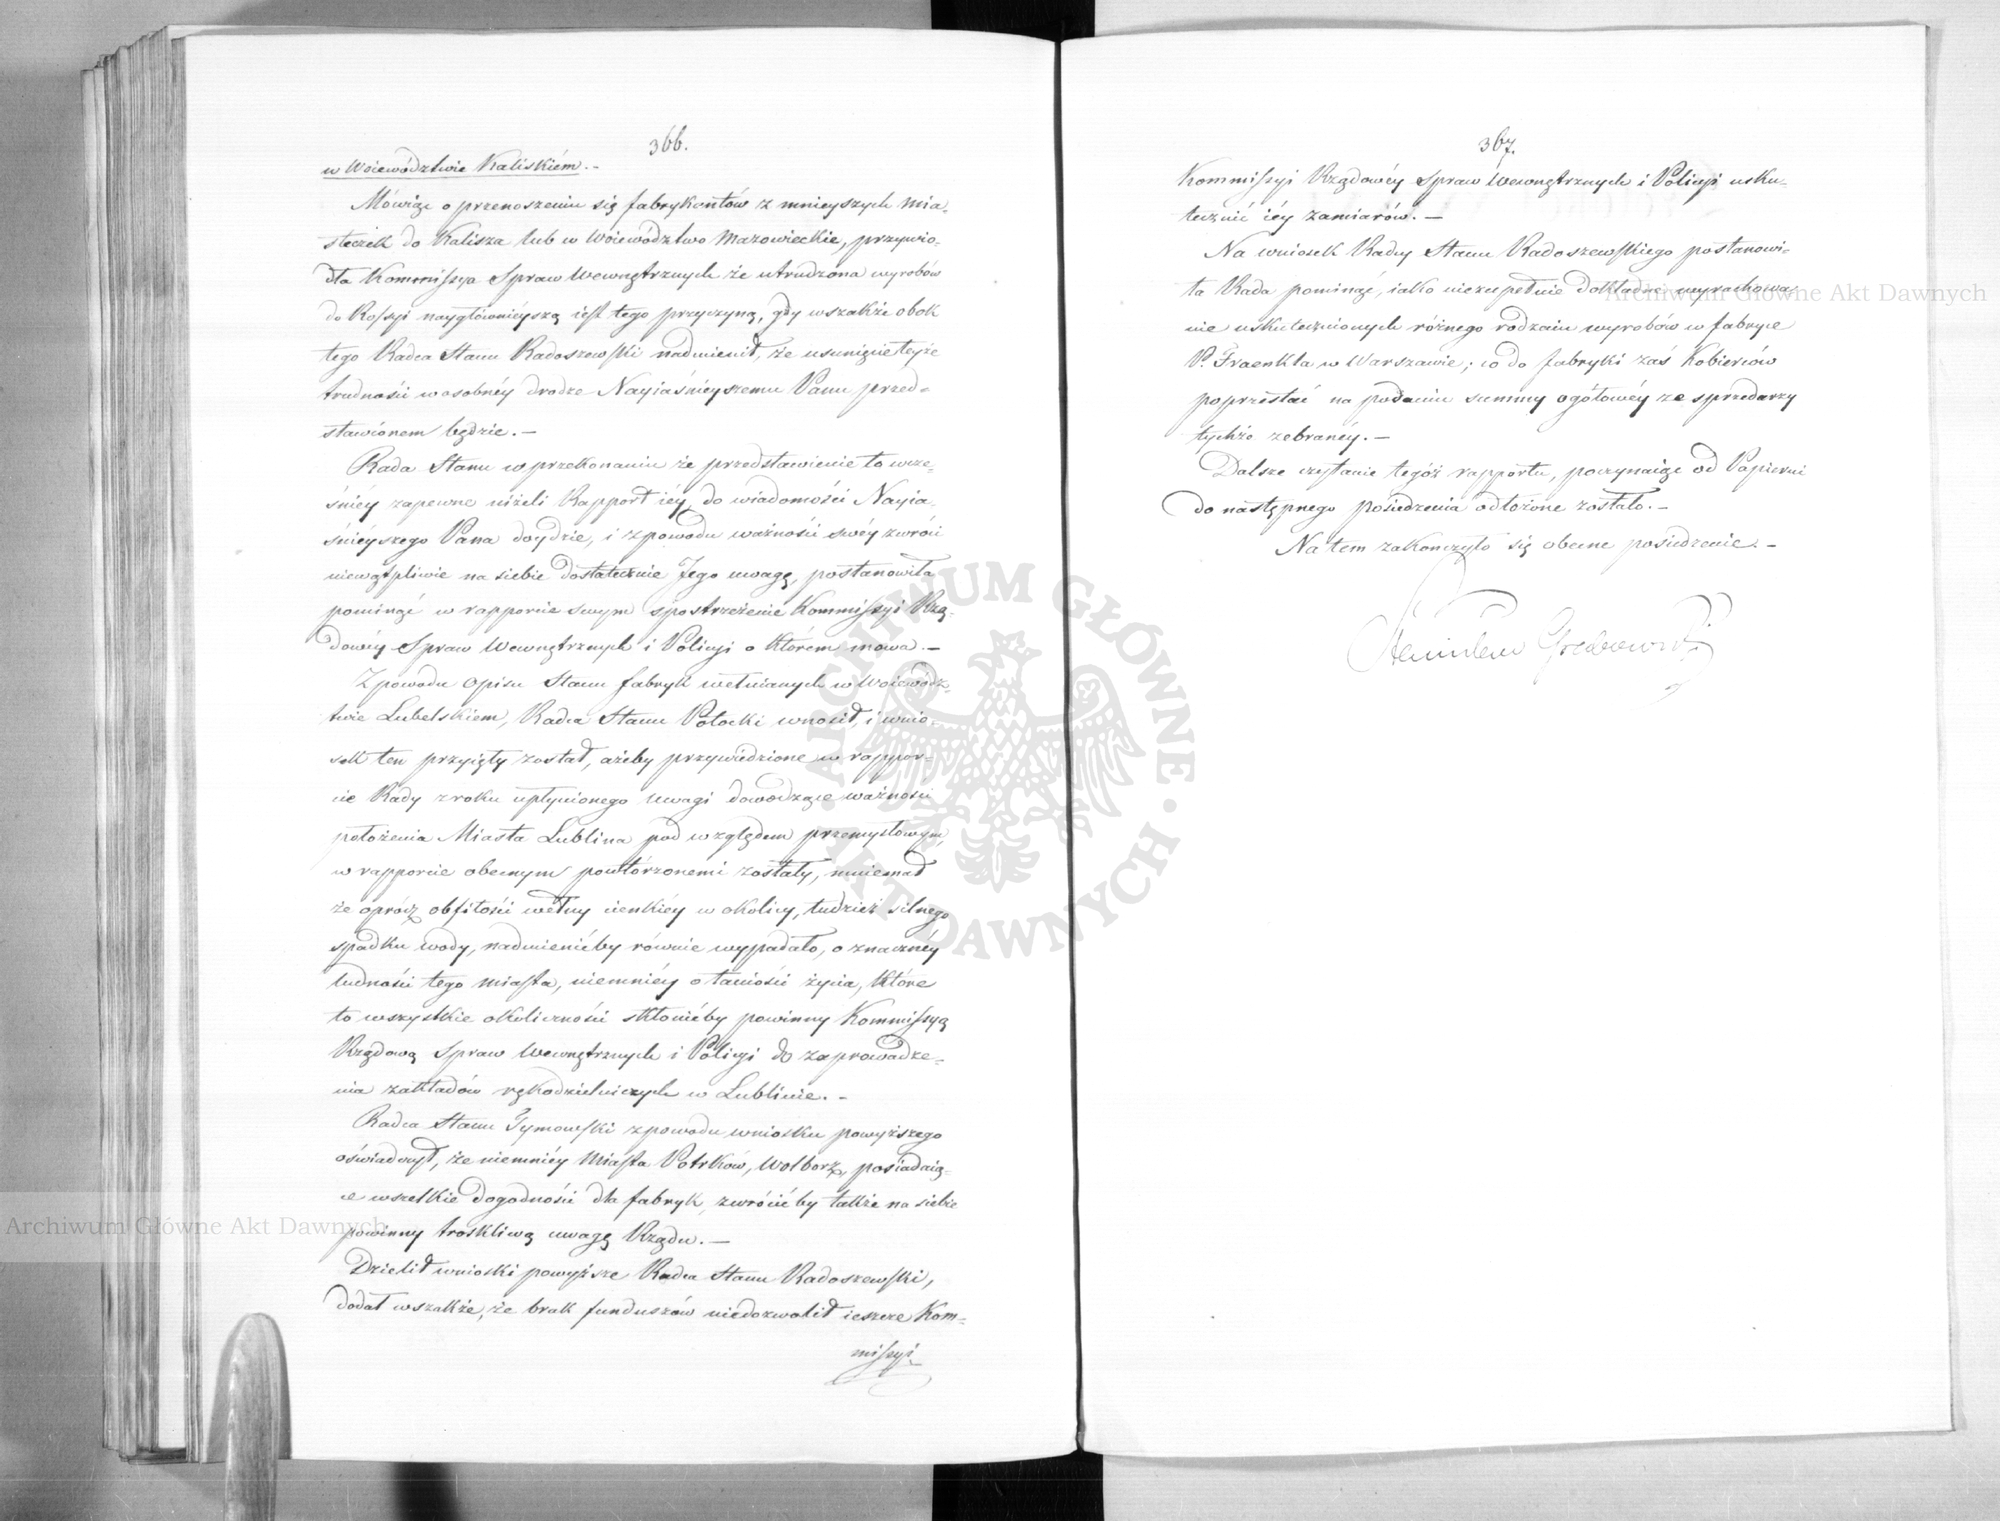 366.
w Woiewództwie Kaliskiém. -
Mówiąc o przenoszeniu się fabrykantów z mnieyszych mia-
steczek do Kalisza lub w Woiewództwo Mazowieckie, przywio-
dła Kommissya Spraw Wewnętrznych że utrudzona wyrobów
do Rossyi naygłównieyszą iest tego przyczyną, gdy wszakże obok
tego Radca Stanu Radoszewski nadmienił, że usunięcie teyże
trudności w osobnéy drodze Nayiaśnieyszemu Panu przed-
stawionem będzie. -
Rada Stanu w przekonaniu że przedstawienie to wcze-
śniéy zapewne niżeli Rapport iéy do wiadomości Nayia-
śnieyszego Pana doydzie, i z powodu ważności swéy zwróci
niewątpliwie na siebie dostatecznie Jego uwagę, postanowiła
pominąć w rapporcie swym spostrzeżenie Kommissyi Rzą-
dowéy Spraw Wewnętrznych i Policyi o którém mowa. -
Z powodu opisu Stanu fabryk wełnianych w Woiewódz-
twie Lubelskiem, Radca Stanu Potocki wnosił, i wnio-
sek ten przyięty został, ażeby przywiedzione w rappor-
cie Rady z roku upłynionego uwagi dowodzące ważności
położenia Miasta Lublina pod względem przemysłowym,
w rapporcie obecnym powtórzonemi zostały, mniemał
że oprócz obfitości wełny cienkiéy w okolicy, tudzież silnego
spadku wody, nadmienićby równie wypadało, o znacznéy
ludności tego miasta, niemniéy o taniości życia, które
to wszystkie okoliczności skłonićby powinny Kommissyą
Rządową Spraw Wewnętrznych i Policyi do zaprowadze-
nia zakładów rękodzielniczych w Lublinie. -
Radca Stanu Tymowski z powodu wniosku powyższego
oświadczył, że niemniéy Miasta Potrków, Wolborz, posiadaią-
ce wszelkie dogodności dla fabryk, zwrócićby także na siebie
powinny troskliwą uwagę Rządu. -
Dzielił wnioski powyższe Radca Stanu Radoszewski,
dodał wszakże, że brak funduszów niedozwolił ieszcze Kom-
missyi
367.
Kommissyi Rządowéy Spraw Wewnętrznych i Policyi usku-
tecznić iéy zamiarów. -
Na wniosek Radcy Stanu Radoszewskiego postanowi-
ła Rada pominąć, iako niezupełnie dokładne wyrachowa-
nie uskutecznionych różnego rodzaiu wyrobów w fabryce
P. Fraenkla w Warszawie; co do fabryki zaś Kobierców
poprzestać na podaniu summy ogółowéy ze sprzedarzy
tychże zebranéy. -
Dalsze czytanie tegoż rapportu, poczynaiąc od Papierni
do następnego posiedzenia odłożone zostało. -
Na tem zakończyło się obecne posiedzenie. -
Stanisław Grabowski
Archiwum Główne Akt Dawnych
Archiwum Główne Akt Dawnych
ARCHIWUM GŁÓWNE AKT DAWNYCH